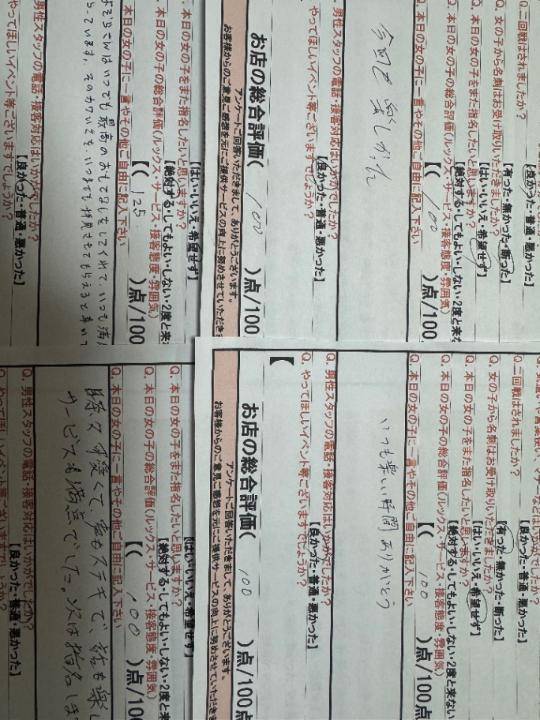 Q.二回戦はされましたか？
【良かった・普通・悪かった】
Q.女の子から名刺はお受け取りいただきましたか？
【有った・無かった・断った】
Q.本日の女の子をまた指名したいと思いますか？
【はい・いいえ・希望せず】
Q.本日の女の子の総合評価(ルックス・サービス・接客態度・雰囲気)
【絶対する・してもよい・しない・2度と来
【( 100 )点/100
Q.本日の女の子に一言やその他ご自由に記入下さい
今回も楽しかった
Q.男性スタッフの電話・接客対応はいかがでしたか？
【良かった・普通・悪かった】
Q.やってほしいイベント等ございますでしょうか？
お店の総合評価( 100 )点/100
アンケートご回答いただきまして、ありがとうございます。
お客様からのご意見ご感想を元にご提供サービスの向上に努めさせていただき
【はい・いいえ・希望せず】
Q.本日の女の子をまた指名したいと思いますか？
【絶対する・してもよい・しない・2度と来
本日の女の子の総合評価(ルックス・サービス・接客態度・雰囲気)
【( 125 )点/100
本日の女の子に一言やその他ご自由に記入下さい
さんはいつでも最高のおもてなしをしてくれて、いつも満
っています。そのカワイさを、いつまでも
男性スタッフの電話・接客対応はいかがでしたか？
【良かった・普通・悪かった】
やってほしいイベント等ございますでしょうか？
【良かった・普通・悪かった】
Q.二回戦はされましたか？
【有った・無かった】
Q.女の子から名刺はお受け取りいただきましたか？
【はい・いいえ・希望せず】
Q.本日の女の子をまた指名したいと思いますか？
【絶対する・してもよい・しない・2度と来ない
Q.本日の女の子の総合評価(ルックス・サービス・接客態度・雰囲気)
【( 100 )点/100点
Q.本日の女の子に一言やその他ご自由に記入下さい
いつも楽しい時間ありがとう
Q.男性スタッフの電話・接客対応はいかがでしたか？
【良かった・普通・悪かった】
Q.やってほしいイベント等ございますでしょうか？
【
お店の総合評価( 100 )点/100点
アンケートご回答いただきまして、ありがとうございます。
お客様からのご意見ご感想を元にご提供サービスの向上に努めさせていただき
【はい・いいえ・希望せず】
Q.本日の女の子をまた指名したいと思いますか？
【絶対する・してもよい・しない・2度と来
Q.本日の女の子の総合評価(ルックス・サービス・接客態度・雰囲気)
( 100 )点/100
Q.本日の女の子に一言やその他ご自由に記入下さい
可愛くて、声もステキで、話も楽し
サービスも満点でした。次は指名しま
Q.男性スタッフの電話・接客対応はいかがでしたか？
【良かった・普通・悪かった】
やってほしいイベント等ございますでしょうか？